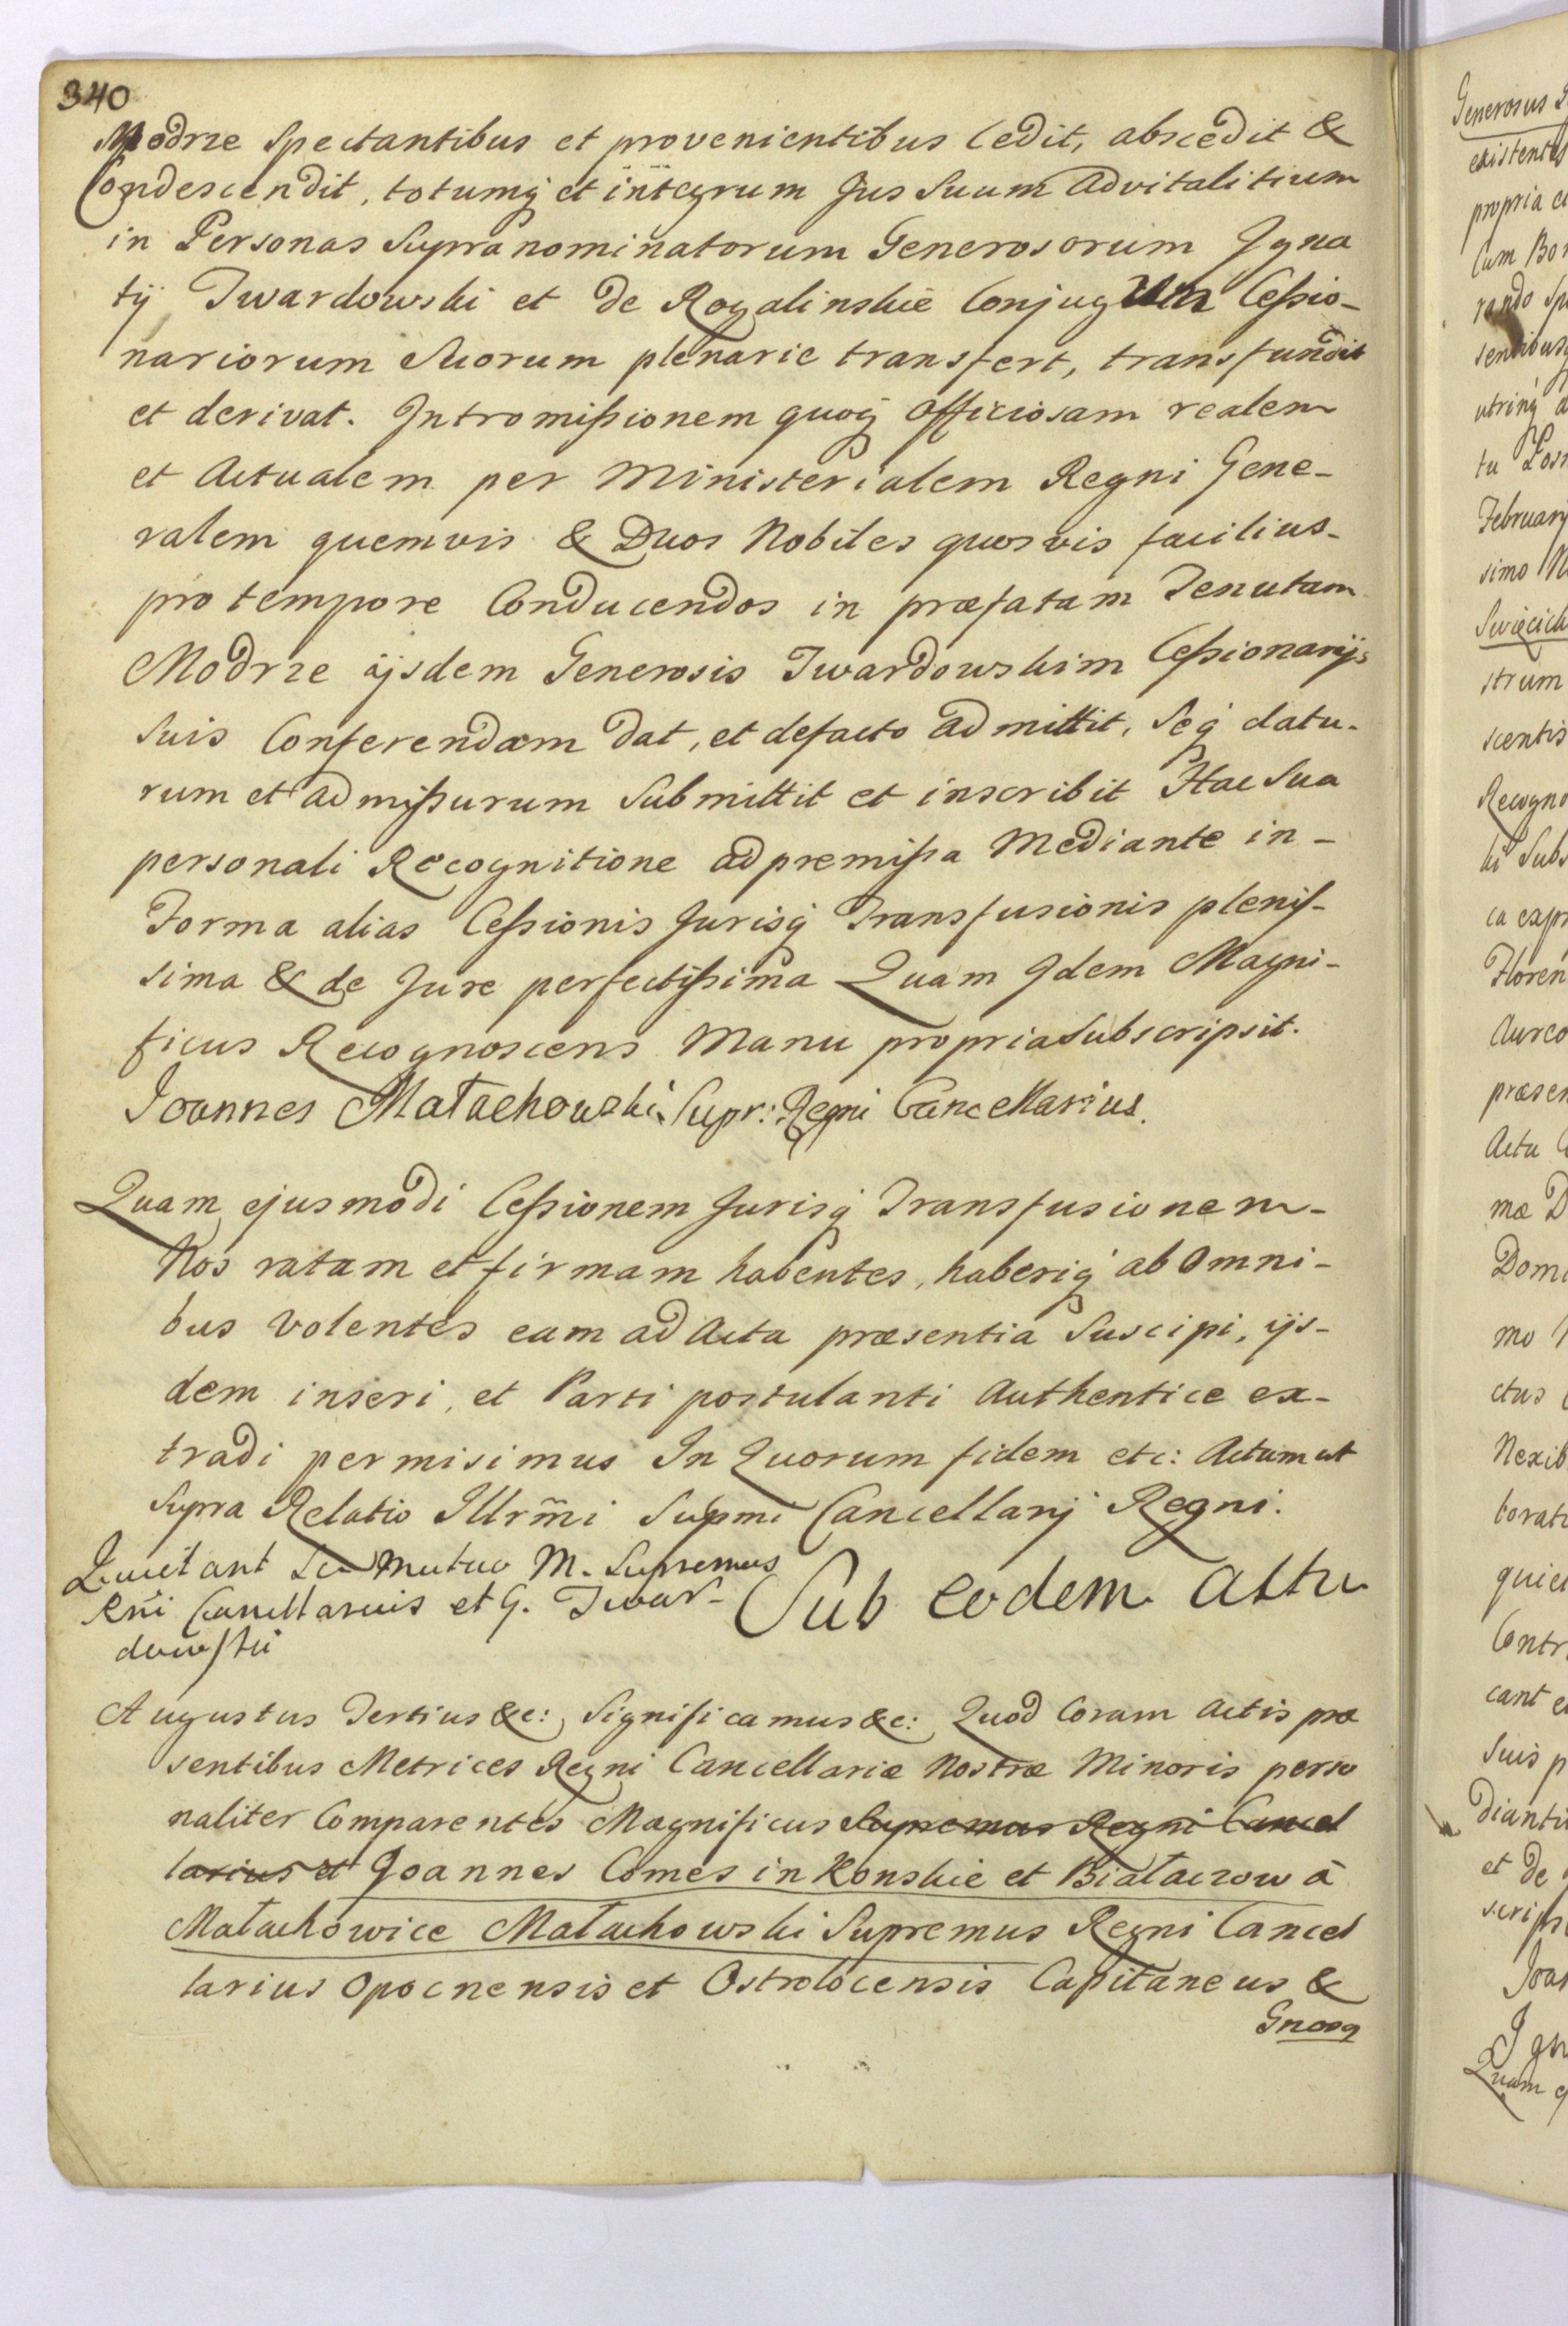 340
Modrze Spectantibus et provenientibus Cedit, abscedit &
Condescendit, totumq́ et integrum Jus Suum Advitalitium
in Personas Supranominatorum Generosorum Igna
tij Twardowski et de Rogalinskie Conjugum Ceßio-
nariorum Suorum plenarie transfert, transfundit
et derivat. Intromißionem quoq́ Officiosam realem
et Actualem per Ministerialem Regni Gene-
ralem quemvis & Duos Nobiles quosvis facilius-
pro tempore Conducendos in præfatam Tenutam
Modrze ijsdem Generosis Twardowskim Ceßionarijs
Suis Conferendam dat, et defacto admittit, Seq́ datu-
rum et admißurum Submittit et inscribit Hac Sua
personali Recognitione ad premißa Mediante in-
Forma alias Ceßionis Jurisq́ Transfusionis plenis-
sima & de Jure perfectißima Quam Idem Magni-
ficus Recognoscens Manu propria Subscripsit.
Joannes Małachowski Supr: Regni Cancellarius.
Quam ejusmodi Ceßionem Jurisq́ Transfusionem-
Nos ratam et firmam habentes, haberiq́ ab Omni-
bus Volentes eam ad Acta præsentia Suscipi, ijs-
dem inseri, et Parti postulanti Authentice ex-
tradi permisimus In Quorum fidem etc: Actum ut
Supra Relatio Illrm̃i Supmi Cancellarij Regni.
Quietant Se mutuo M. Supremus
Rñi Cancellarius et G. Twar-
dowski
Sub eodem actu
Augustus Tertius &c: Significamus &c: Quod Coram Actis præ
sentibus Metrices Regni Cancellariæ Nostræ Minoris perso
naliter Comparentes Magnificus Supremus Regni Cancel
larius et Joannes Comes in Konskie et Białaczow à
Małachowice Małachowski Supremus Regni Cancel
larius Opocnensis et Ostrolocensis Capitaneus &
Gnosq